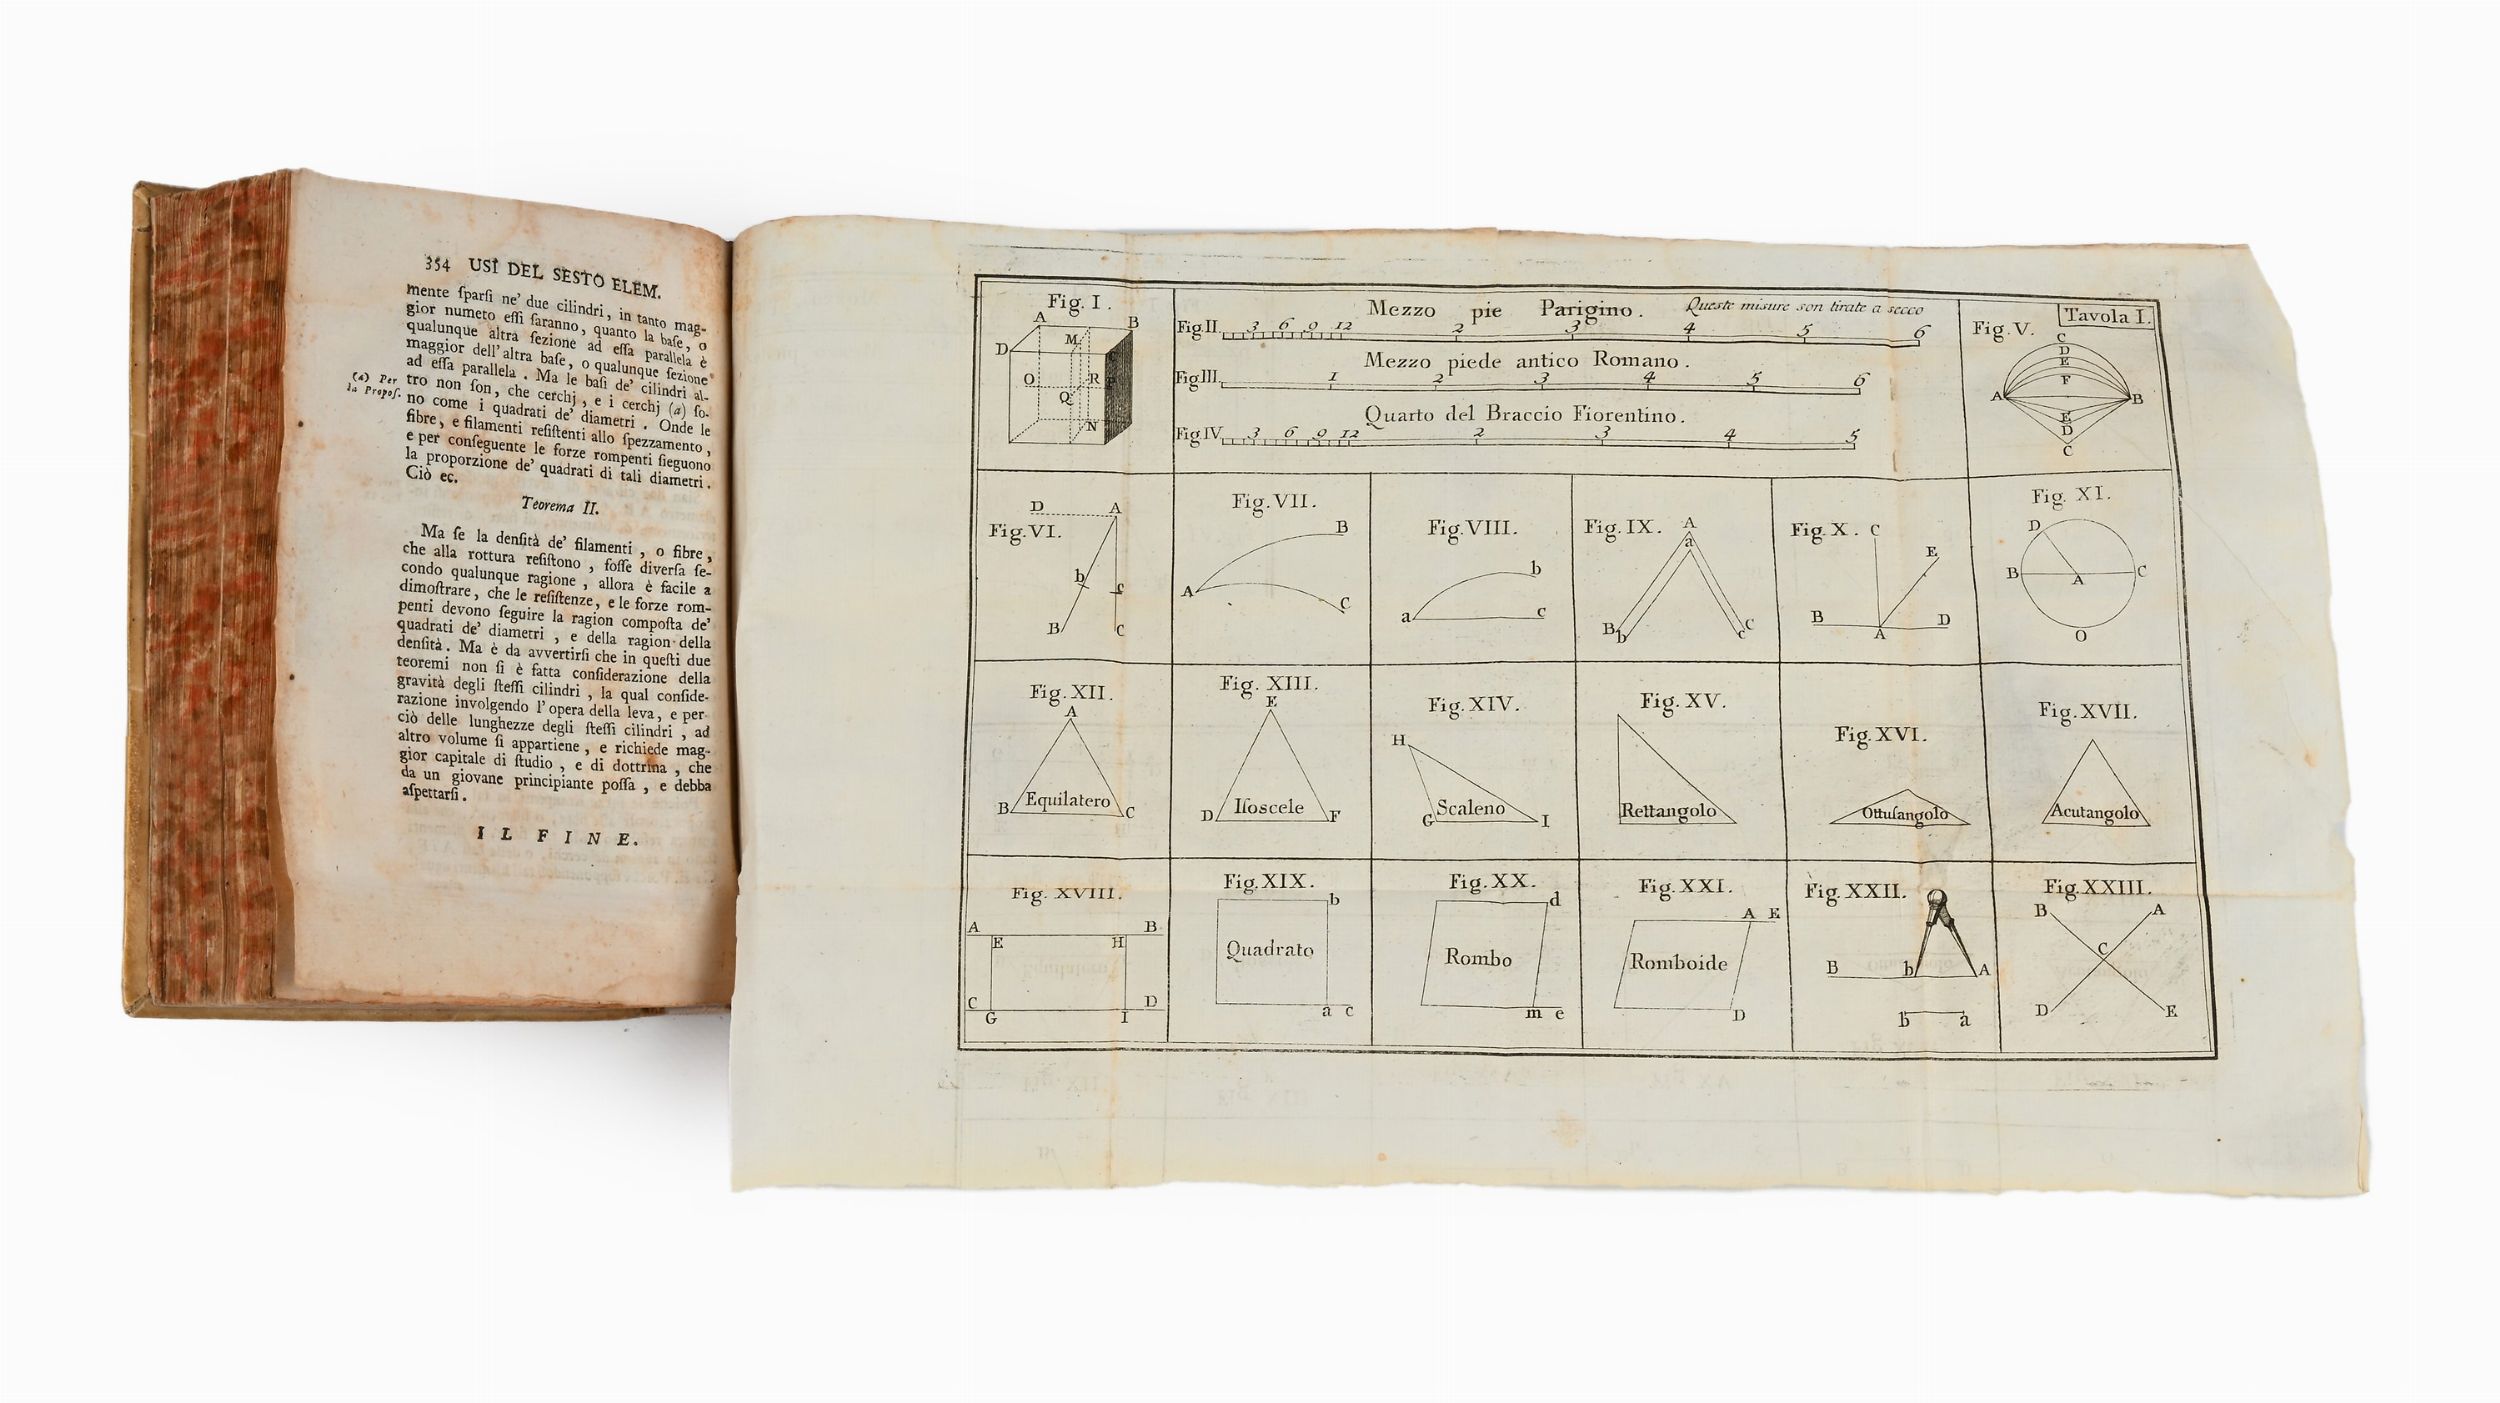 354 USI DEL SESTO ELEM.
mente ſparſi ne' due cilindri, in tanto mag-
gior numeto eſſi ſaranno, quanto la baſe, o
qualunque altra ſezione ad eſſa parallela è
maggior dell'altra baſe, o qualunque ſezione
ad eſſa parallela. Ma le baſi de' cilindri al-
(a) Per
la Propoſ.
tro non ſon, che cerchj, e i cerchj (a) ſo-
no come i quadrati de' diametri. Onde le
fibre, e filamenti reſiſtenti allo ſpezzamento,
e per conſeguente le forze rompenti ſieguono
la proporzione de' quadrati di tali diametri.
Ciò ec.
Teorema II.
Ma ſe la denſità de' filamenti, o fibre,
che alla rottura reſiſtono, foſſe diverſa ſe-
condo qualunque ragione, allora è facile a
dimoſtrare, che le reſiſtenze, e le forze rom-
penti devono ſeguire la ragion compoſta de'
quadrati de' diametri, e della ragion della
denſità. Ma è da avvertirſi che in queſti due
teoremi non ſi è fatta conſiderazione della
gravità degli ſteſſi cilindri, la qual conſide-
razione involgendo l'opera della leva, e per
ciò delle lunghezze degli ſteſſi cilindri, ad
altro volume ſi appartiene, e richiede mag-
gior capitale di ſtudio, e di dottrina, che
da un giovane principiante poſſa, e debba
aſpettarſi.
IL FINE.
Tavola I.
Fig. I.
A B
D M C
O R P
Q
N
Mezzo pie Parigino. Queste misure son tirate a secco
Fig. II. 3 6 9 12 2 3 4 5 6
Mezzo piede antico Romano.
Fig. III. 1 2 3 4 5 6
Quarto del Braccio Fiorentino.
Fig. IV. 3 6 9 12 2 3 4 5
Fig. V.
C
D
E
F
A B
E
D
C
Fig. VI.
D A
b c
B C
Fig. VII.
B
A C
Fig. VIII.
b
a c
Fig. IX.
A
a
B b c C
Fig. X.
C E
B A D
Fig. XI.
D
B A C
O
Fig. XII.
A
B Equilatero C
Fig. XIII.
E
D Iſoscele F
Fig. XIV.
H
G Scaleno I
Fig. XV.
Rettangolo
Fig. XVI.
Ottuſangolo
Fig. XVII.
Acutangolo
Fig. XVIII.
A B
E H
C D
G I
Fig. XIX.
b
Quadrato
a c
Fig. XX.
d
Rombo
m e
Fig. XXI.
A E
Romboide
D
Fig. XXII.
B b A
b a
Fig. XXIII.
B A
C
D E